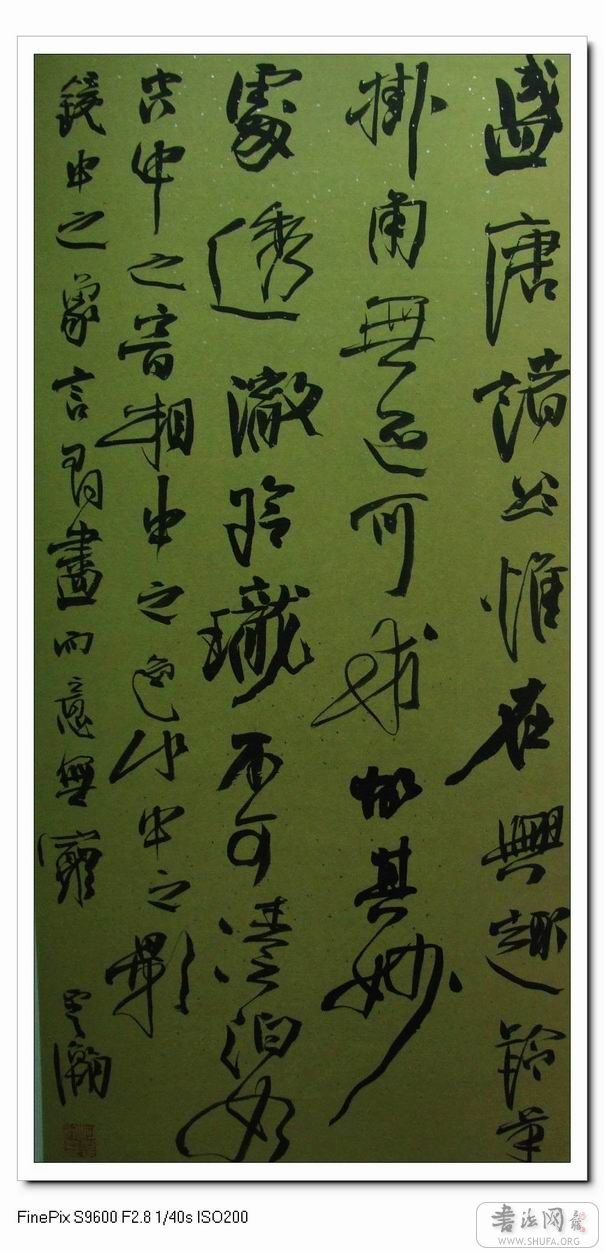 盛唐諸公惟在興趣羚羊
掛角無迹可求故其妙
處透澈玲瓏不可湊泊如
空中之音相中之色水中之影
鏡中之象言有盡而意無窮
FinePix S9600 F2.8 1/40s ISO200
书法网
WWW.SHUFA.ORG